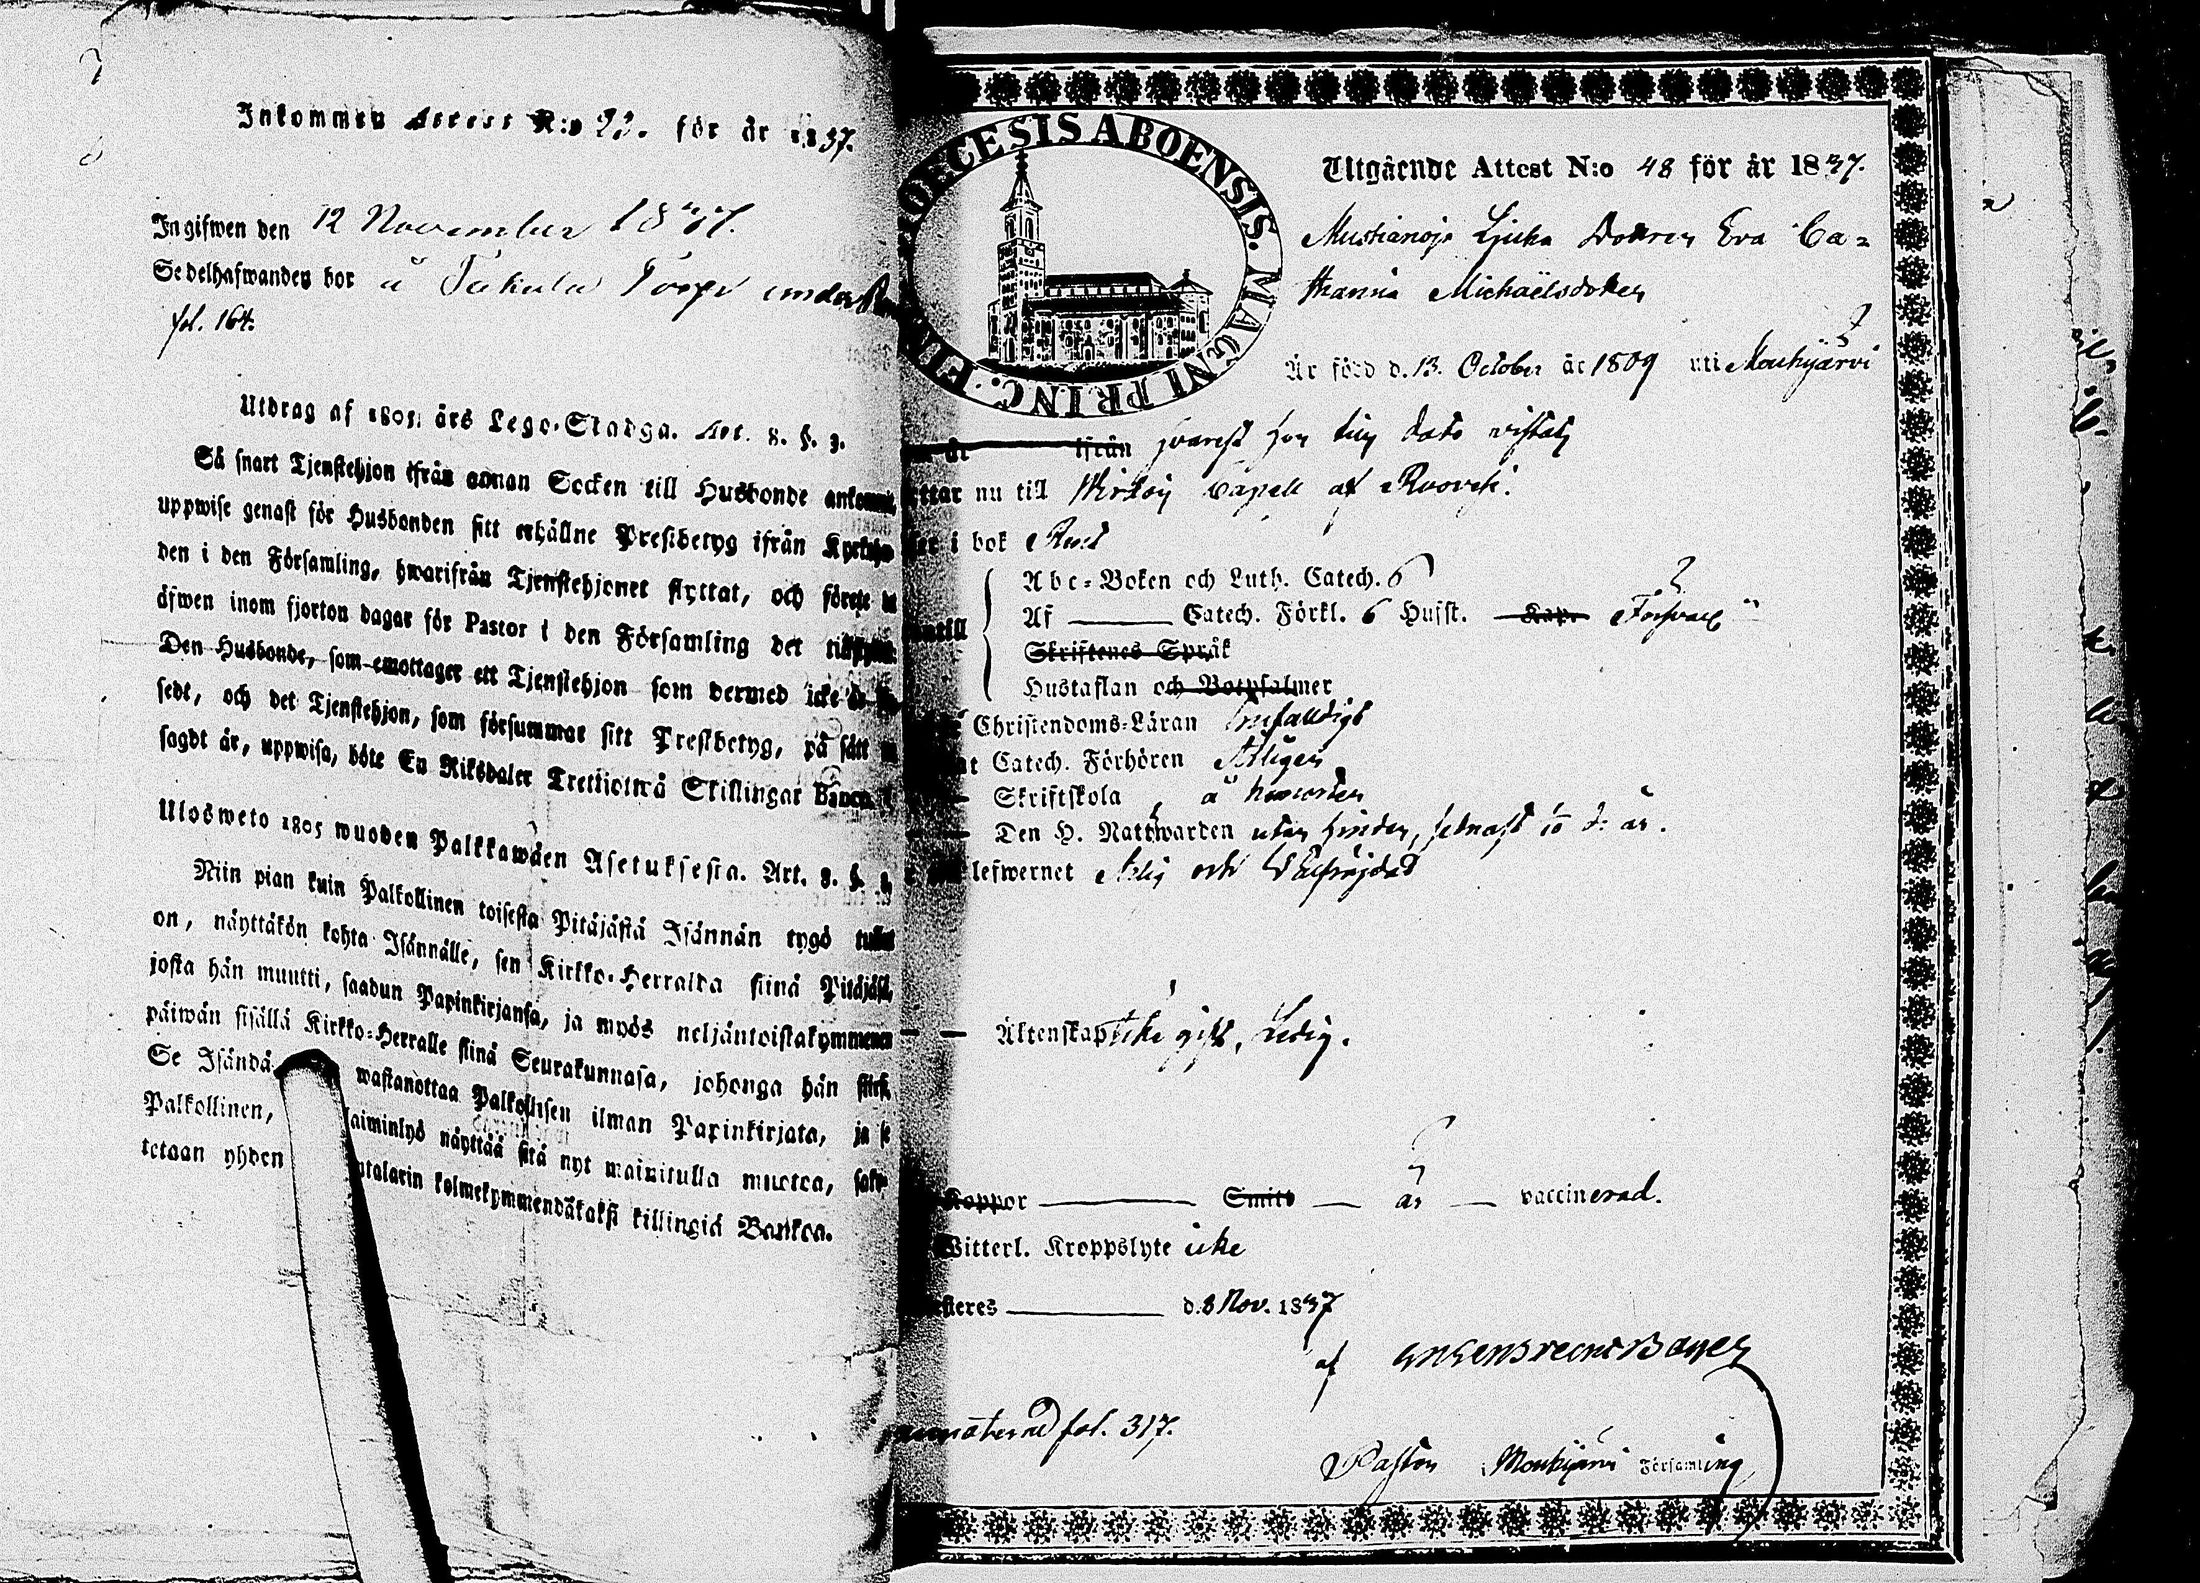 Inkommen Attest N:o 22. för år 1837.
Ingifwen den 12 November 1837.
Sedelhafwanden bor å Torp under
fol. 164.
Utdrag af 1805 års Lego-Stadga. Art. 8. §. 9.
Så snart Tjenstehjon ifrån annan Socken till Husbonde ankommit,
uppwise genast för Husbonden sitt erhållne Prestbetyg ifrån
den i den Församling, hwarifrån Tjenstehjonet flyttat, och förete
äfwen inom fjorton dagar för Pastor i den Församling det
Den Husbonde, som emottager ett Tjenstehjon som dermed icke är
sedt, och det Tjenstehjon, som försummar sitt Prestbetyg, på sätt
sagdt är, uppwisa, böte En Riksdaler Trettiotwå Skillingar Banco.
Ulosweto 1805 wuoden Palkkawäen Asetuksesta. Art. 8. §. 9.
Niin pian kuin Palkollinen toisesta Pitäjästä Isännän tygö tullut
on, näyttäkön kohta Isännälle, sen Kirkko-Herralda siinä
josta hän muutti, saadun Papinkirjansa, ja myös neljäntoistakymmenen
päiwän sisällä Kirkko-Herralle siinä Seurakunnasa, johonga hän
Se Isändä wastanottaa Palkollisen ilman Papinkirjata, ja se
Palkollinen, laiminlyö näyttää sitä nyt mainitulla muotoa,
tetaan yhden talarin kolmekymmendäkaksi killingiä Bankoa.
DIOECESIS ABOENSIS. MAGNI PRINC. FINL.
Utgående Attest N:o 48 för år 1837.
Mustianoja Dottren Eva Ca=
tharina Michaëlsdotter
Är född d. 13. October år 1809 uti Mouhijärvi
ifrån hvarest hon till dato vistats
nu till Wirdois Capell af Ruovesi.
i bok
Abc-Boken och Luth. Catech. 6
Af Catech. Förkl. 6 Husst. Kap. Försvarl
Skriftenes Språk
Hustaflan och Botpsalmer
Christendoms-Läran Enfaldigt
Catech. Förhören Årligen
Skriftskola å
Den H. Nattwarden utan hinder, sednast d: år.
lefwernet Ärlig och Wälfräjdad
Äktenskap icke gift, Ledig.
Koppor Smitt är vaccinerad.
Witterl. Kroppslyte icke
d. 8 Nov. 1837
af
fol. 317.
Pastor i Mouhijärvi Församling